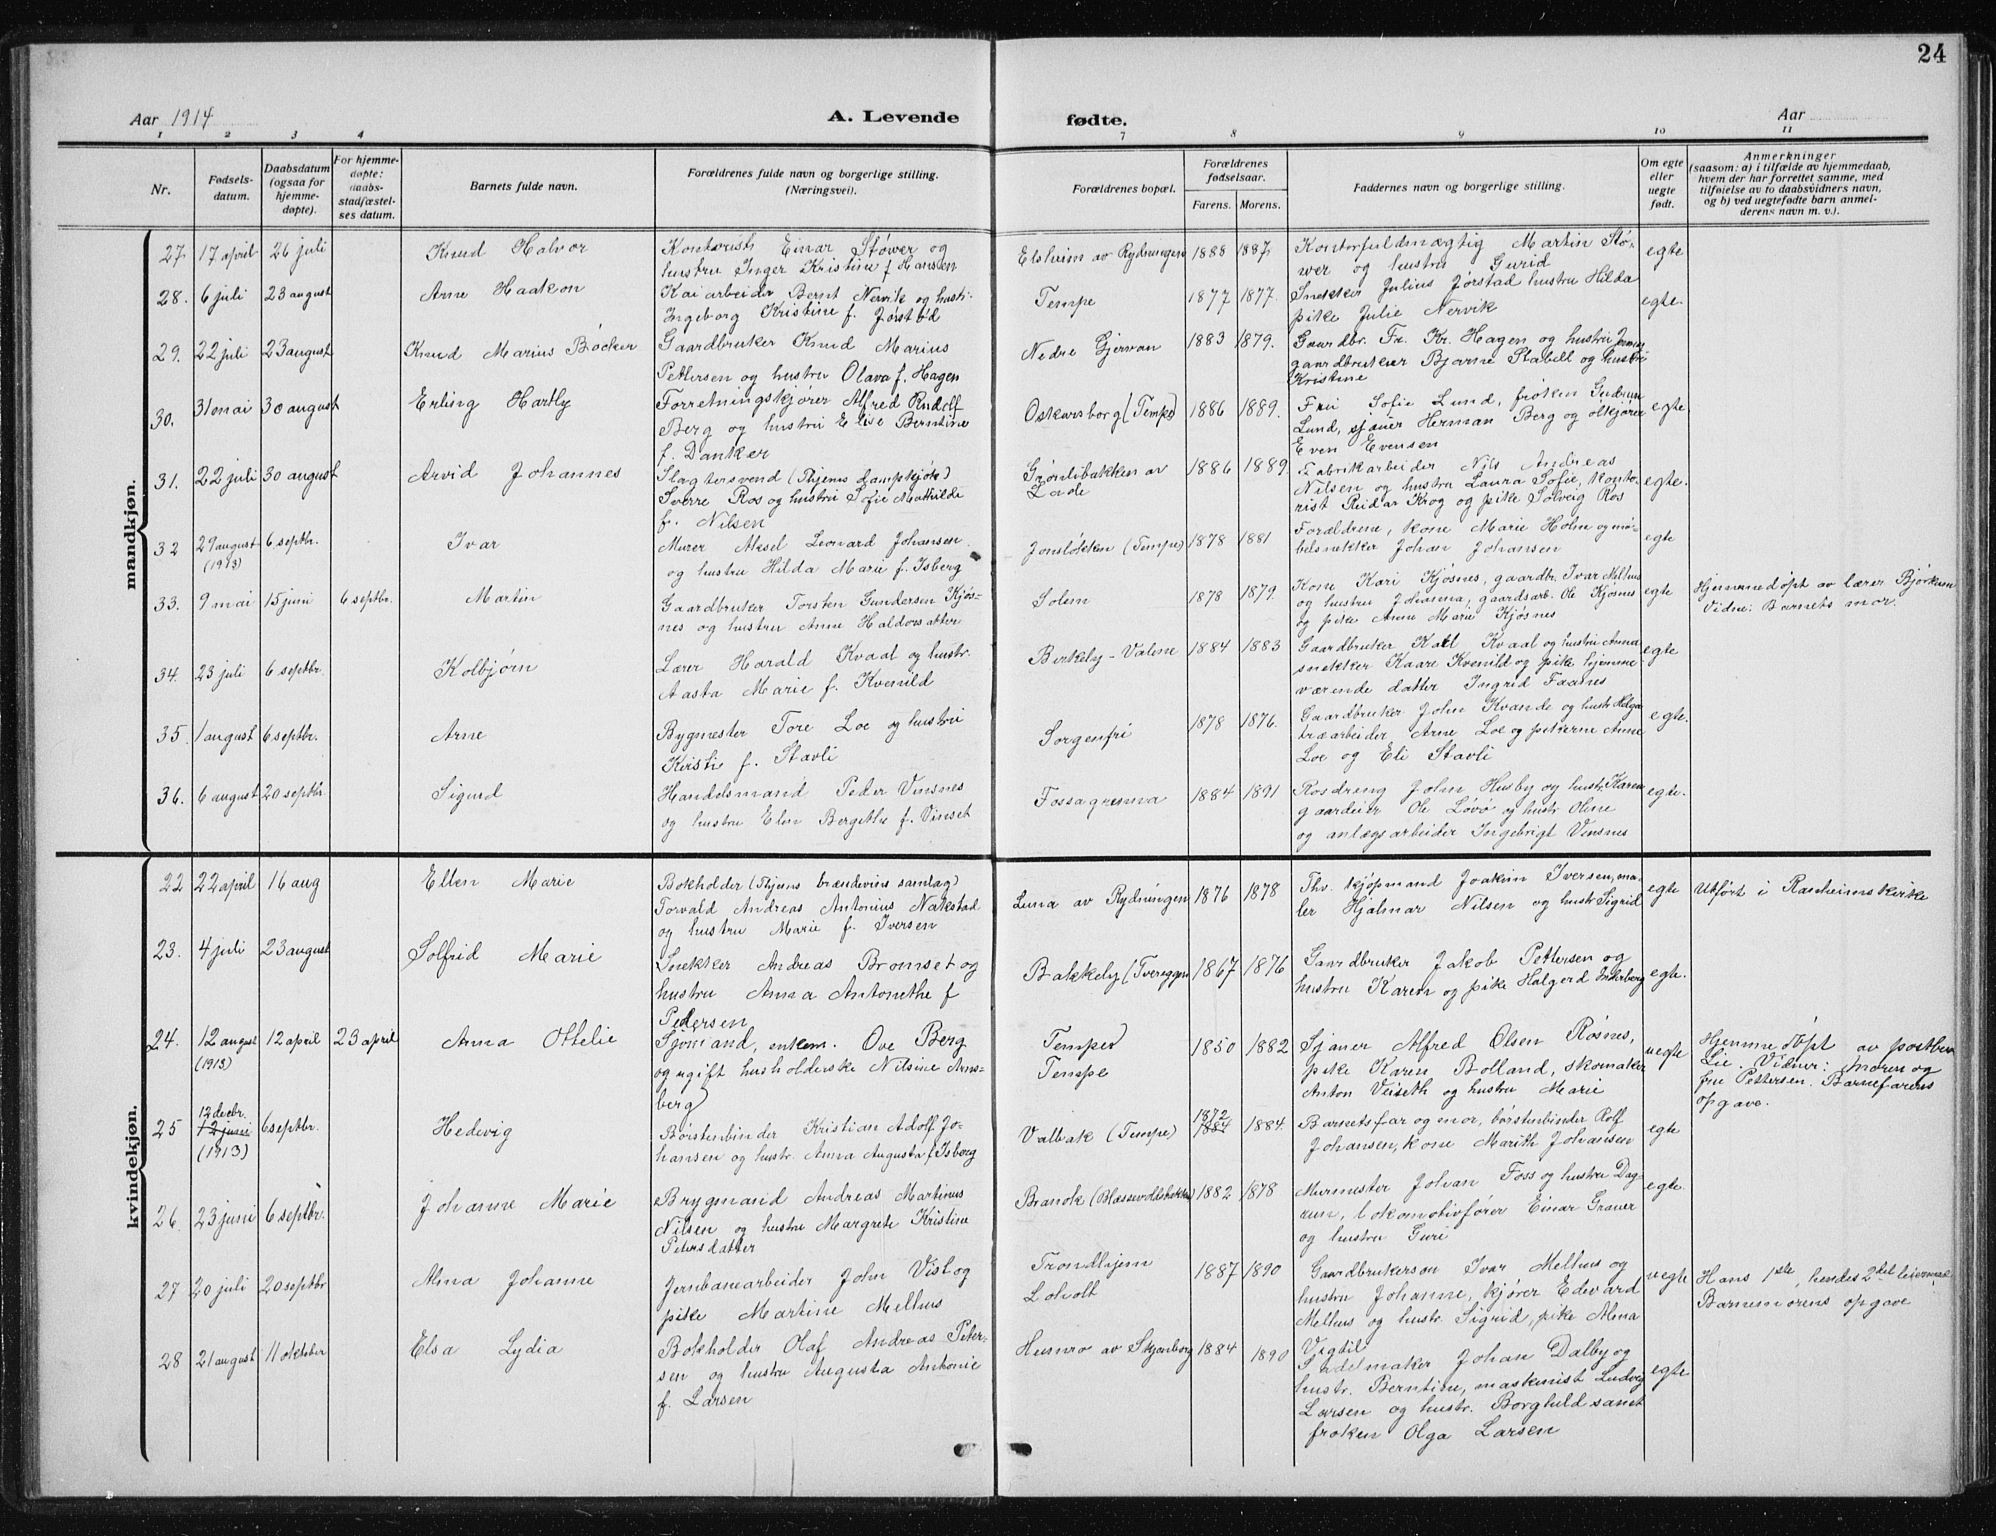 24
Aar 1914
A. Levende
fødte.
Aar
1 2 3 4
7 8 9 10 11
Nr.
Fødsels-
datum.
Daabsdatum
(ogsaa for
hjemme-
døpte).
For hjemme-
døpte:
daabs-
stadfæstel-
ses datum.
Barnets fulde navn.
Forældrenes fulde navn og borgerlige stilling.
(Næringsvei).
Forældrenes bopæl.
Forældrenes
fødselsaar.
Farens. Morens.
Faddernes navn og borgerlige stilling.
Om egte
eller
uegte
født.
Anmerkninger
(saasom: a) i tilfælde av hjemmedaab,
hvem der har forrettet samme, med
tilføielse av to daabsvidners navn,
og b) ved uegtefødte barn anmel-
derens navn m. v.).
mandkjøn.
27. 17 april 26 juli
Knud Halvor
Kontorist Einar Støwer og
hustru Inger Kristine f. Hansen
Elsheim av Rydningen 1888 1887
Kontorfuldmægtig Martin Stø-
wer og hustru Gurid
egte
28. 6 juli 23 august
Arne Haakon
Kaiarbeider Bernt Nervik og hust.
Ingeborg Kristine f. Jørstad
Tempe 1877 1877.
Snekker Julius Jørstad hustru Hilda
pike Julie Nervik
egte.
29. 22 juli 23 august
Knud Marius Bøcker
Gaardbruker Knud Marius
Pettersen og hustru Olava f. Hagen
Nedre Gjervan 1883 1879.
Gaardbr. Fr. Kr. Hagen og hustru
gaardbruker Bjarne Stabell og hustru
Kristine
30. 31 mai 30 august
Erling Hartly
Forretningskjører Alfred Rudolf
Berg og hustru Elise Berntine
f. Danker
Oskarsborg (Tempe) 1886 1889.
Fru Sofie Lund, frøken Gudrun
Lund, sjauer Herman Berg og ølkjører
Even Evensen
egte.
31. 22 juli 30 august
Arvid Johannes
Slagtersvend (Thjems dampkjøk.)
Sverre Ros og hustru Sofie Mathilde
f. Nilsen
Grønlibakken av
Lade
1886 1889.
Fabrikarbeider Nils Andreas
Nilsen og hustru Laura Sofie, konto-
rist Reidar Krog og pike Solveig Ros
egte.
32 29 august 6 septbr.
(1913)
Ivar
Murer Aksel Leonard Johansen
og hustru Hilda Marie f. Isberg
Jonsløkken (Tempe) 1878 1881
Forældrene, kone Marie Holm og mø-
belsnekker Johan Johansen
egte
33. 9 mai 15 juni 6 septbr.
Martin
Gaardbruker Torsten Gundersen Kjøs-
nes og hustru Anne Haldorsatter
Solem 1878 1879
Kone Kari Kjøsnes, gaardbr. Ivar Melhus
og hustru Johanna, gaardsarb. Ole Kjøsnes
og pike Anne Marie Kjøsnes
egte
Hjemmedøpt av lærer Bjørkum
Vidne: Barnets mor.
34. 23 juli 6 septbr.
Kolbjørn
Lærer Harald Kvaal og hustr.
Aasta Marie f. Kvenild
Birkely - Valene 1884 1883
Gaardbruker Karl Kvaal og hustru Anna
snekker Kaare Kvenild og pike hjemme-
værende datter Ingrid Faanes
egte
35. 1 august 6 septbr.
Arne
Bygmester Tore Loe og hustru
Kristi f. Stavli
Sorgenfri 1878 1876.
Gaardbruker John Kvande og hustr. Helga
træarbeider Arne Loe og pikerne Anne
Loe og Eli Stavli
egte.
36. 6 august 20 septbr.
Sigurd
Handelsmand Peder Vinsnes
og hustru Elen Bergithe f. Vinset
Fossagrenna 1884 1891
John Husby og hustr. Karen
gaardeier Ole Løvø og hustr. Oline
og anlægsarbeider Ingebrigt Vinsnes
egte.
kvindekjøn.
22 22 april 16 aug
Ellen Marie
Bokholder (Thjems brændevins samlag)
Torvald Andreas Antonius Nakstad
og hustru Marie f. Iversen
Luna av Rydningen 1876 1878
Thv. kjøpmand Joakim Iversen, ma-
ler Hjalmar Nilsen og hustr. Sigrid
egte
Utført i Ranheimskirke
23. 4 juli 23 august
Solfrid Marie
Snekker Andreas Bromset og
hustru Anna Antonethe f
Pedersen
Bakkely (Tvereggen) 1867 1876
Gaardbruker Jakob Pettersen og
hustru Karen og pike Halgerd Inderberg
egte.
24. 12 august 12 april 23 april
(1913)
Anna Ottelie
Sjømand, enkem. Ove Berg
og ugift husholderske Nilsine Arns-
berg)
Tempe
Tempe
1850 1882
Sjauer Alfred Olsen Røsnes,
pike Karen Bolland, skomaker
Anton Veiseth og hustru Marie
uegte
Hjemmedøpt av postbev
Lie. Vidner: Moren og
fru Pettersen. Barnefarens
opgave.
25 12 decbr. 6 septbr.
12 juni
(1913)
Hedevig
Børstenbinder Kristian Adolf Jo-
hansen og hustr. Anna Augusta f. Isberg
Valbak (Tempe) 1872 1884.
1884
Barnets far og mor, børstenbinder Rolf
Johansen, kone Marith Johansen
egte
26. 23 juni 6 septbr.
Johanne Marie
Brygmand Andreas Martinus
Nilsen og hustru Margrete Kristine
Petersdatter
Branok (Blassevoldsbakken) 1882 1878
Murmester Johan Foss og hustru Dag-
run, lokomotivfører Einar Graner
og hustru Guri
egte.
27 20 juli 20 septbr
Alma Johanne
Jernbanearbeider John Vist og
pike Martine Melhus
Trondhjem
Loholt
1887 1890
Gaardbrukersøn Ivar Melhus og
hustru Johanne, kjører Edevard
Melhus og hustr. Sigrid, pike Alma
Vigtil
uegte
Hans 1ste, hendes 2det leiermaal
Barnemorens opgave
28 21 august 11 oktober
Elsa Lydia
Bokholder Olaf Andreas Peter-
sen og hustru Augusta Antonie
f. Larsen
Husnro av Skjønberg 1884 1890
Sadelmaker Johan Dalby og
hustr. Berntine, maskinist Ludvig
Larsen og hustr. Borghild samt
frøken Olga Larsen
egte